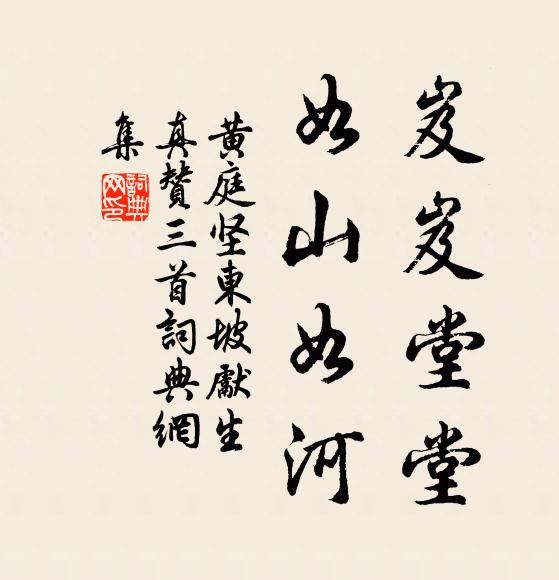 岌岌堂堂
如山如河
黄庭坚東坡獻生
真贊三首詞典網
集
詞典网印